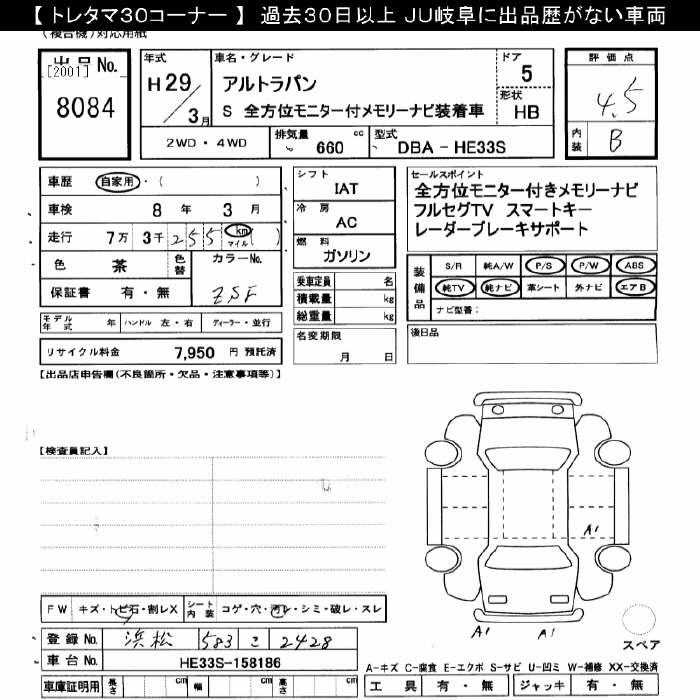 【 トレタマ30コーナー 】 過去30日以上 JU岐阜に出品歴がない車両
(複合機)対応用紙
出品 No.
[2001]
8084
年式
H 29 / 3月
車名・グレード
アルトラパン
S 全方位モニター付メモリーナビ装着車
ドア
5
形状
HB
2WD・4WD
排気量 660 cc
型式 DBA - HE33S
評価点
4.5
内装 B
車歴 自家用・( )
車検 8 年 3 月
走行 7万 3千 255 km マイル ( )
色 茶 色替 カラーNo.
保証書 有・無 ZSF
シフト
IAT
冷房
AC
燃料
ガソリン
乗車定員 名
積載量 kg
総重量 kg
名変期限
月 日
セールスポイント
全方位モニター付きメモリーナビ
フルセグTV スマートキー
レーダーブレーキサポート
装備品
S/R 純A/W P/S P/W ABS
純TV 純ナビ 革シート 外ナビ エアB
ナビ型番:
後日品
モデル年式 年 ハンドル 左・右 ディーラー・並行
リサイクル料金 7,950 円 預託済
【出品店申告欄(不良箇所・欠品・注意事項等)】
【検査員記入】
FW キズ・トビ石・割レX シート内装 コゲ・穴・汚レ・シミ・破レ・スレ
登録No. 浜松 583 こ 2428
車台No. HE33S-158186
車庫証明用 長さ cm 幅 cm 高さ cm
A1
A1 A1
スペア
A-キズ C-腐食 E-エクボ S-サビ U-凹ミ W-補修 XX-交換済
工具 有・無 ジャッキ 有・無